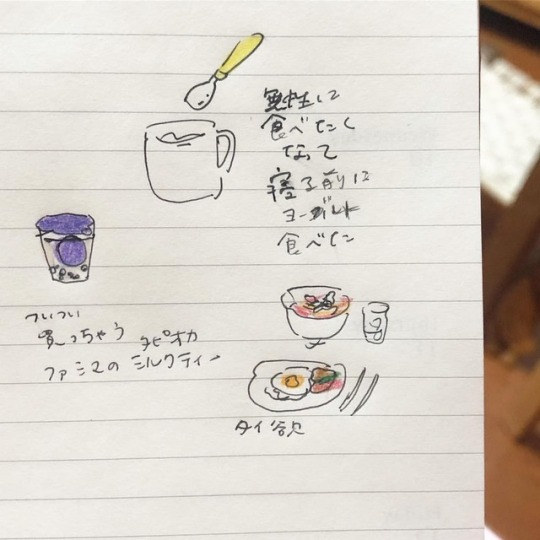 無性に
食べたく
なって
寝る前に
ヨーグルト
食べた
ついつい
買っちゃう
ファミマの タピオカ
ミルクティー
タイ欲